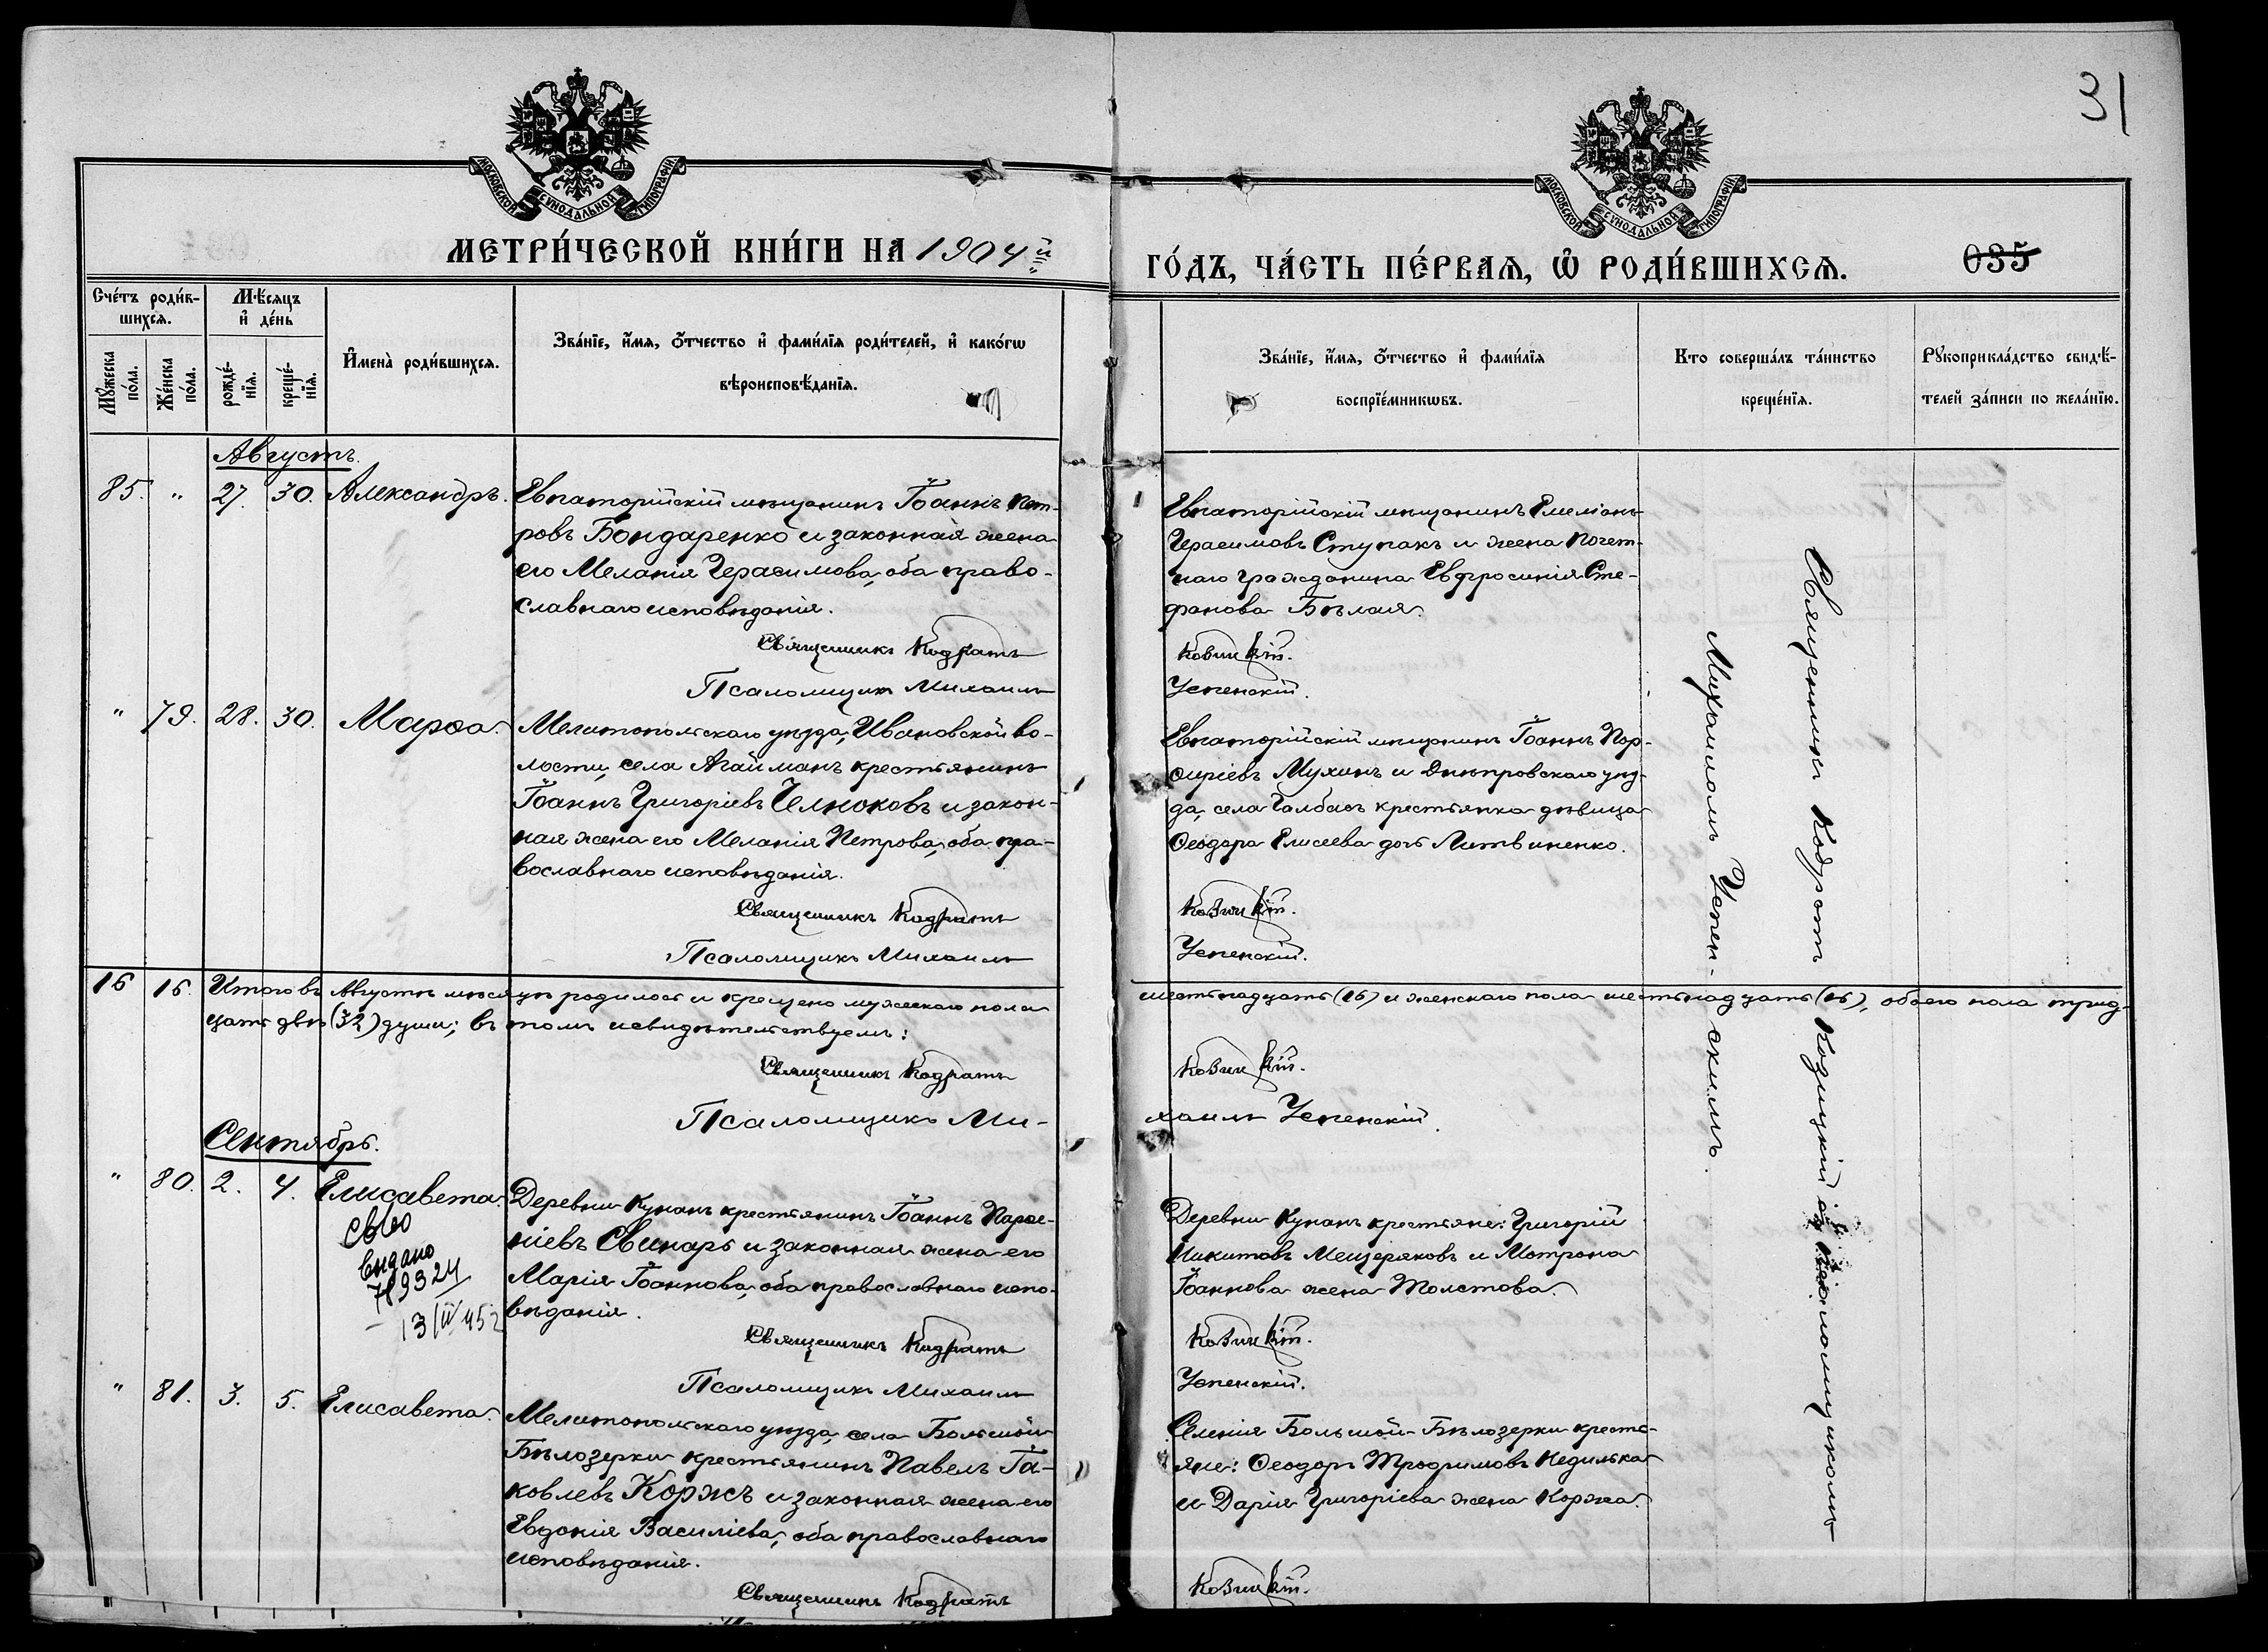 31
МОСКОВСКОЙ СУНОДАЛЬНОЙ ТИПОГРАФІИ
МОСКОВСКОЙ СУНОДАЛЬНОЙ ТИПОГРАФІИ
МЕТРИ́ЧЕСКОЙ КНИ́ГИ НА 1904й
ГО́ДЪ, ЧА́СТЬ ПЕ́РВАѦ, Ѡ РОДИ́ВШИХСѦ.
035
Сче́тъ роди́в-
шихсѧ.
Мꙋ́жеска
по́ла.
Же́нска
по́ла.
Мѣ́сѧцъ
и҆ де́нь
рожде́-
нїѧ.
креще́-
нїѧ.
И҆мена̀ роди́вшихсѧ.
Зва́нїе, и҆́мѧ, ѻ҆́тчество и҆ фами́лїѧ роди́телей, и҆ како́гѡ
вѣроисповѣ́данїѧ.
Зва́нїе, и҆́мѧ, ѻ҆́тчество и҆ фами́лїѧ
воспрїе́мникѡвъ.
Кто соверша́лъ та́инство
креще́нїѧ.
Рꙋкоприкла́дство свидѣ́-
телей за́писи по жела́нїю.
Августъ.
85. " 27. 30. Александръ.
Евпаторійскій мѣщанинъ Іоаннъ Пет-
ровъ Бондаренко и законная жена
его Меланія Герасимова, оба право-
славнаго исповѣданія.
Священникъ Кодратъ
Псаломщикъ Михаилъ
Евпаторійскій мѣщанинъ Емеліанъ
Герасимовъ Ступакъ и жена почет-
наго гражданина Евфросинія Сте-
фанова Бѣлая.
Козицкій.
Успенскій.
" 79. 28. 30. Марѳа.
Мелитопольскаго уѣзда, Ивановской во-
лости, села Агайманъ крестьянинъ
Іоаннъ Григоріевъ Челноковъ и закон-
ная жена его Меланія Петрова, оба пра-
вославнаго исповѣданія.
Священникъ Кодратъ
Псаломщикъ Михаилъ
Евпаторійскій мѣщанинъ Іоаннъ Пор-
фиріевъ Мухинъ и Днѣпровскаго уѣз-
да, села Чалбасъ крестьянка дѣвица
Ѳеодора Елисеева дочь Литвиненко.
Козицкій.
Успенскій.
16 16. Итого въ Августѣ мѣсяцѣ родилось и крещено мужескаго пола шестьнадцать (16) и женскаго пола шестьнадцать (16), обоего пола трид-
цать двѣ (32) души; въ томъ и свидѣтельствуемъ:
Священникъ Кодратъ Козицкій.
Псаломщикъ Михаилъ Успенскій.
Сентябрь.
" 80. 2. 4. Елисавета.
Св-во
выдано
789324
13/IV 452
Деревни Кунанъ крестьянинъ Іоаннъ Парѳе-
ніевъ Свинарь и законная жена его
Марія Іоаннова, оба православнаго испо-
вѣданія.
Священникъ Кодратъ
Псаломщикъ Михаилъ
Деревни Кунанъ крестьяне: Григорій
Никитовъ Мещеряковъ и Мотрона
Іоаннова жена Толстова.
Козицкій.
Успенскій.
" 81. 3. 5. Елисавета.
Мелитопольскаго уѣзда, села Большой
Бѣлозерки крестьянинъ Павелъ Іа-
ковлевъ Коржъ и законная жена его
Евдокія Василіева, оба православнаго
исповѣданія.
Священникъ Кодратъ
Селенія Большой-Бѣлозерки кресть-
яне: Ѳеодоръ Трофимовъ Недилька
и Дарія Григоріева жена Коржа.
Козицкій.
Священникъ Кодратъ Козицкій съ псаломщикомъ
Михаиломъ Успен-скимъ.